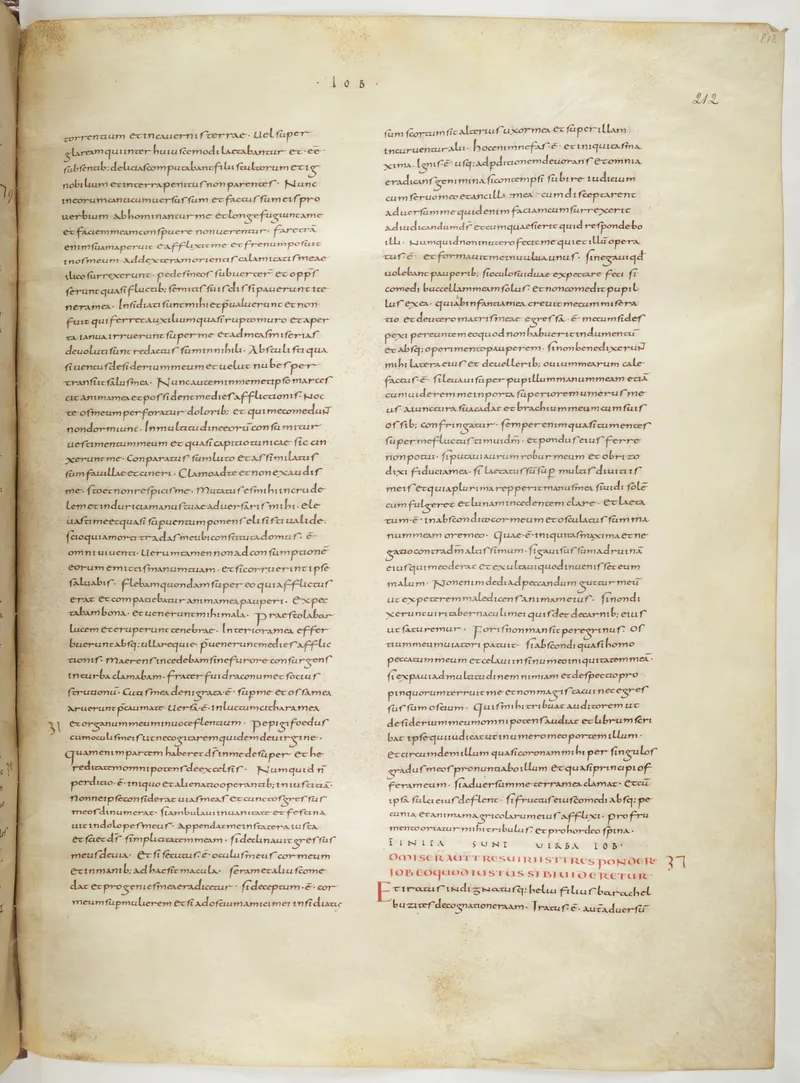 · IOB ·
212
torrentium et incauernis terrae · Uel super
glaream qui inter huiuscemodi laetabantur et ee
sub sentib; delicias computabant filii stultorum et ig
nobilium et interra penitus non parentes · Nunc
ineorum canticum uersus sum et factus sum eis pro
uerbium · abhominantur me et longe fugiunt a me
et faciem meam conspuere non uerentur · faretrã
enim suam aperuit et afflixit me et frenum posuit
in os meum · Addexteram orientis calamitatis meae
ilico surrexerunt · pedes meos subuerter̃ et opp̃s
serunt quasi fluctib; semitis suis dissipauerunt ite
nera mea · Insidiati sunt mihi et p̃ualuerunt et non
fuit qui ferret auxilium quasi rupto muro et aper
ta ianua irruerunt super me et ad meas miserias
deuoluti sunt redactus sum in nihili · Abstulisti qua
si uentus desiderium meum et uelut nubes per
transiit salus mea · Nunc autem in memetipso marces
cit anima mea et possident me dies afflictionis · Noc
te os meum perforatur dolorib; et qui me comedunt
non dormiunt · In multitudine eorũ consumitur
uestimentum meum et quasi capitio tunicae sic cin
xerunt me · Comparatus sum luto et assimilatus
sum fauillae et cineri · Clamo ad te et non exaudis
me · sto et non respicis me · Mutatus es mihi in crude
lem et in duritia manus tuae aduersaris mihi · ele
uasti me et quasi super uentum ponens elisisti ualide ·
scio quia morti trades me ubi constituta domus · ẽ ·
omni uiuenti · Uerum tamen non ad consumptionẽ
eorum emittis manum tuam · et si corruerint ipse
saluabis · flebam quondam super eo qui afflictus
erat et compatiebatur anima mea pauperi · Expec
tabam bona · et uenerunt mihi mala · Praestolabar
lucem et eruperunt tenebrae · Interiora mea effer
buerunt absq; ulla requie · p̃uenerunt me dies afflic
tionis · Maerens incedebam sine furore consurgens
in turba clamabam · frater fui draconum et socius
strutionũ · Cutis mea denigrata · ẽ · sup me et ossa mea
aruerunt p̃ caumate · Uersa · ẽ · in luctum cithara mea
31 et organum meum in uoce flentium · Pepigi foedus
cum oculis meis ut ne cogitarem quidem de uirgine ·
Quam enim partem haberet d̃s in me desuper · et he
reditatem omnipotens de excelsis · Numquid ñ
perditio · ẽ · iniquo et alienatio operantib; iniustitiã ·
Nonne ipse considerat uias meas et cunctos gressus
meos dinumerat · si ambulaui in uanitate et festina
uit in dolo pes meus · Appendat me in statera iusta
et sciet d̃s simplicitatem meam · si declinauit gressus
meus de uia · Et si secutus · ẽ · oculus meus cor meum
et in manib; adhaesit macula · seram et alius come
dat et progenies mea eradicetur · si deceptum · ẽ · cor
meum sup mulierem et si ad ostium amici mei insidiatus
sum scortum sit alterius uxor mea et super illam
incuruentur alii · hoc enim nefas · ẽ · et iniquitas ma
xima · Ignis · ẽ · usq; ad p̃ditionem deuorans et omnia
eradicans genimina si contempsi subire iudicium
cum seruo meo et ancilla mea · cum disceptarent
aduersum me quid enim faciam cum surrexerit
ad iudicandum d̃s et cum quaesierit quid respondebo
illi · Numquid non in utero fecit me qui et illũ opera
tus · ẽ · et formauit me in uulua unus · si negaui qd
uolebant pauperib; si oculos uiduae expectare feci si
comedi buccellam meam solus · et non comedit pupil
lus ex ea · quia ab infantia mea creuit mecum misera
tio et de utero matris meae egressa · ẽ · mecum si des
pexi pereuntem eo quod non habuerit indumentũ
et absq; operimento pauperem · si non benedixerunt
mihi latera eius et de uellerib; ouium mearum cale
factus · ẽ · si leuaui super pupillum manum meam etiã
cum uiderem me in porta superiorem umerus me
us a iunctura sua cadat et brachium meum cum suis
ossib; confringatur · semper enim quasi tumentes
super me fluctus timui dm̃ · et pondus eius ferre
non potui · si putaui aurum robur meum et obrizo
dixi fiducia mea · si laetatus sũ sup̃ multis diuitiis
meis et quia plurima repperit manus mea si uidi solẽ
cum fulgeret et lunam incedentem clare · et laeta
tum · ẽ · in abscondito cor meum et osculatus sum ma
num meam ore meo · Quae · ẽ · iniquitas maxima et ne
gatio contra dm̃ altissimum · si gauisus sum ad ruinã
eius qui me oderat et exultaui quod inuenisset eum
malum · Non enim dedi ad peccandum guttur meũ
ut expeterem maledicens animam eius · si non di
xerunt uiri tabernaculi mei quis det de carnib; eius
ut saturemur · foris non mansit peregrinus · Os
tium meum uiatori patuit · si abscondi quasi homo
peccatum meum et celaui in sinu meo iniquitatem meã ·
si expaui ad multitudinem nimiam et despectio pro
pinquorum terruit me et non magis tacui nec egres
sus sum ostium · Quis mihi tribuat auditorem ut
desiderium meum omnipotens audiat et librum scri
bat ipse qui iudicat ut in umero meo portem illum ·
et circumdem illum quasi coronam mihi per singulos
gradus meos pronuntiabo illum et quasi principi of
feram eum · si aduersum me terra mea clamat · et cũ
ipsa sulci eius deflent · si fructus eius comedi absq; pe
cunia et animam agricolarum eius afflixi · pro fru
mento oriatur mihi tribulus · et pro hordeo spina ·
FINITA SUNT VERBA IOB ·
OMISERAUT TRES UIRI ISTI RESPONDERE 32
IOB EO QUOD IUSTUS SIBI UIDERETUR
Et iratus indignatusq; heliu filius barachel
buzites de cognatione ram · Iratus · ẽ · autẽ aduersũ